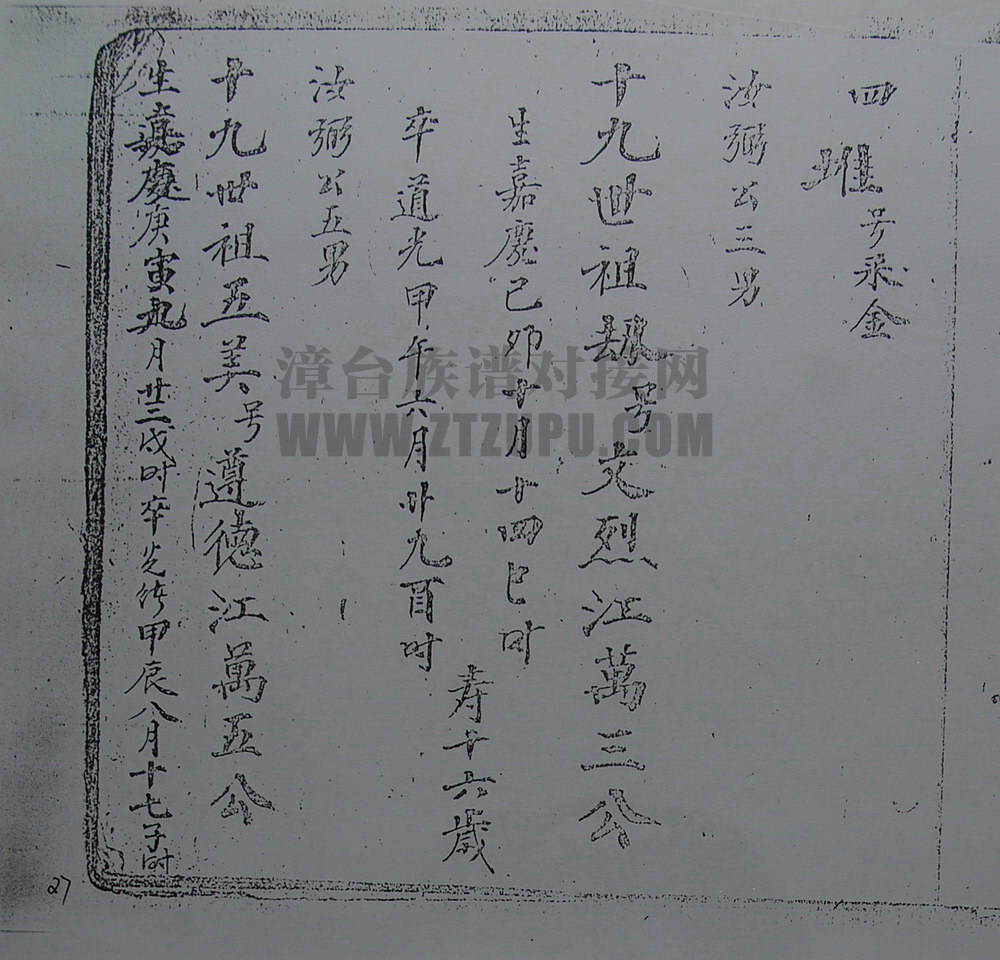 四 㘰号永金
汝弼公三男
十九世祖 号文烈江萬三公
生嘉慶己卯十月十四巳时
卒道光甲午六月卅九酉时
寿十六歲
汝弼公五男
十九世祖五美号遵德江萬五公
生嘉慶庚寅九月廿二戌时卒光绪甲辰八月十七子时
27
漳台族谱对接网
WWW.ZTZUPU.COM